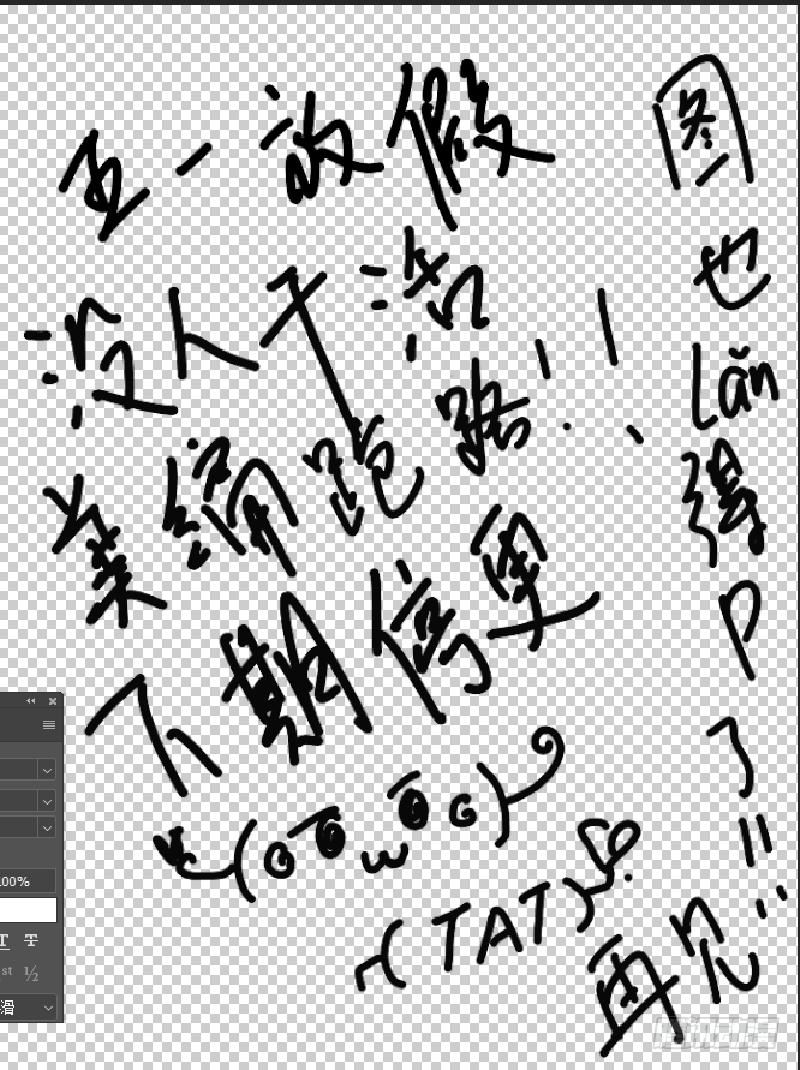 五一放假
没人干活
美编跑路!!
下期停更
(TAT)
图也lǎn得P了!!
再见
100%
T T
st ½
滑